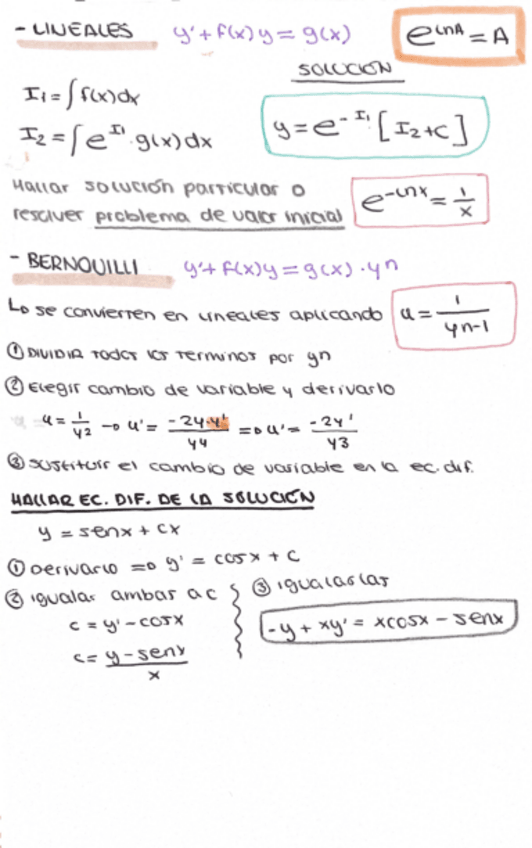 - LINEALES y' + f(x) y = g(x) e^{lnA} = A
SOLUCIÓN
I₁ = ∫ f(x) dx
I₂ = ∫ e^{I₁} · g(x) dx y = e^{-I₁} [I₂ + C]
Hallar solución particular o
resolver problema de valor inicial e^{-lnx} = 1/x
- BERNOUILLI y' + f(x) y = g(x) · yⁿ
Lo se convierten en lineales aplicando u = 1/yⁿ⁻¹
① DIVIDIR TODOS LOS TERMINOS POR yⁿ
② Elegir cambio de variable y derivarlo
u = 1/y² → u' = -2y·y'/y⁴ => u' = -2y'/y³
③ sustituir el cambio de variable en la ec. dif.
HALLAR EC. DIF. DE LA SOLUCIÓN
y = senx + cx
① Derivarlo => y' = cosx + c
② igualar ambas a c
c = y' - cosx
c = y - senx / x
③ igualarlas
-y + xy' = xcosx - senx